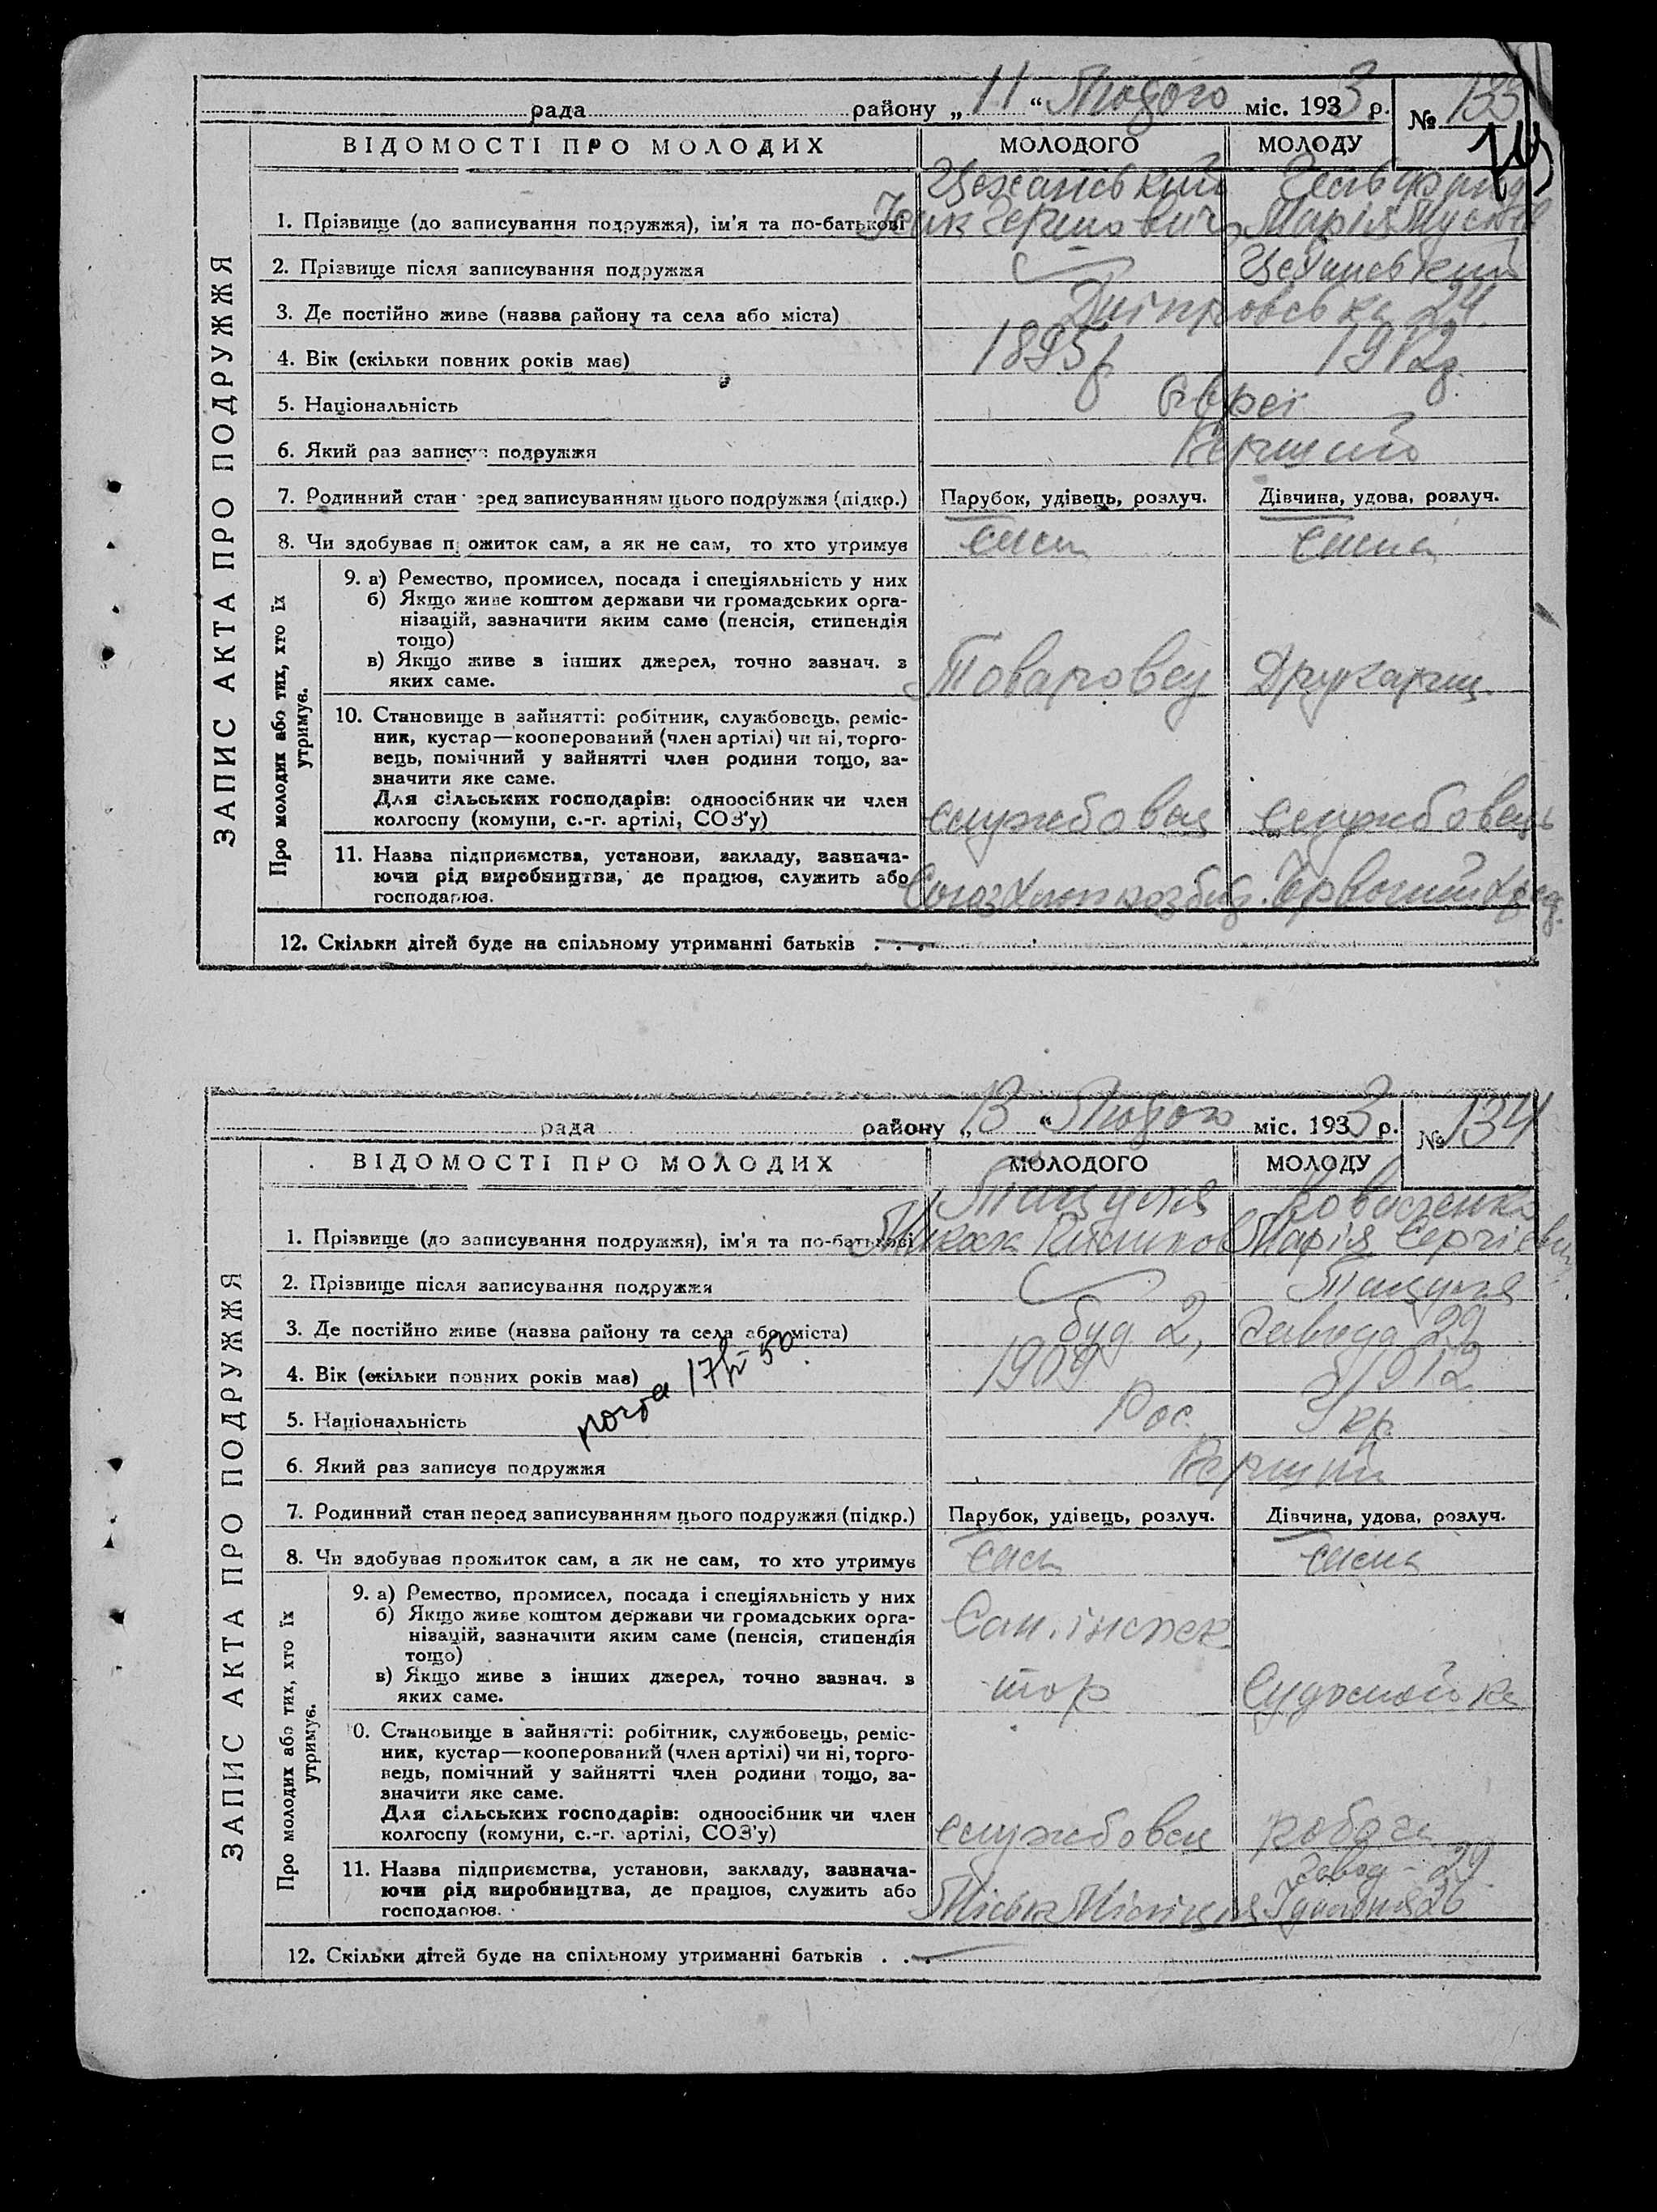 рада району „ 11 “ Лютого міс. 1933 р. № 133
ВІДОМОСТІ ПРО МОЛОДИХ МОЛОДОГО МОЛОДУ
ЗАПИС АКТА ПРО ПОДРУЖЖЯ
Цеханський
1. Прізвище (до записування подружжя), ім'я та по-батькові Марія
2. Прізвище після записування подружжя Цеханський
3. Де постійно живе (назва району та села або міста) Дніпровська 24.
4. Вік (скільки повних років має) 1895р. 1912р.
5. Національність Євреї
6. Який раз записує подружжя Перший
7. Родинний стан перед записуванням цього подружжя (підкр.) Парубок, удівець, розлуч. Дівчина, удова, розлуч.
8. Чи здобував прожиток сам, а як не сам, то хто утримує сам сама
Про молодих або тих, хто їх утримує.
9. а) Ремество, промисел, посада і спеціяльність у них
б) Якщо живе коштом держави чи громадських орга-
нізацій, зазначити яким саме (пенсія, стипендія
тощо)
в) Якщо живе з інших джерел, точно зазнач. з
яких саме. Товаровец Друкарщ.
10. Становище в зайнятті: робітник, службовець, реміс-
ник, кустар—кооперований (член артілі) чи ні, торго-
вець, помічний у зайнятті член родини тощо, за-
значити яке саме.
Для сільських господарів: одноосібник чи член
колгоспу (комуни, с.-г. артілі, СОЗ'у) службовец службовець
11. Назва підприємства, установи, закладу, зазнача-
ючи рід виробництва, де працює, служить або
господарює.
12. Скільки дітей буде на спільному утриманні батьків . . .
рада району „ 13 “ Лютого міс. 1933 р. № 134
ВІДОМОСТІ ПРО МОЛОДИХ МОЛОДОГО МОЛОДУ
ЗАПИС АКТА ПРО ПОДРУЖЖЯ
Коваленко
1. Прізвище (до записування подружжя), ім'я та по-батькові Марія Сергієвн
2. Прізвище після записування подружжя
3. Де постійно живе (назва району та села або міста) буд 2, Завода 29
4. Вік (скільки повних років має) 1909 1912
5. Національність Рос. Укр.
6. Який раз записує подружжя Перший
7. Родинний стан перед записуванням цього подружжя (підкр.) Парубок, удівець, розлуч. Дівчина, удова, розлуч.
8. Чи здобував прожиток сам, а як не сам, то хто утримує сам сама
Про молодих або тих, хто їх утримує.
9. а) Ремество, промисел, посада і спеціяльність у них
б) Якщо живе коштом держави чи громадських орга- Сан. інспек
нізацій, зазначити яким саме (пенсія, стипендія
тощо)
в) Якщо живе з інших джерел, точно зазнач. з
яких саме. тор Судомойка
0. Становище в зайнятті: робітник, службовець, реміс-
ник, кустар—кооперований (член артілі) чи ні, торго-
вець, помічний у зайнятті член родини тощо, за-
значити яке саме.
Для сільських господарів: одноосібник чи член
колгоспу (комуни, с.-г. артілі, СОЗ'у) службовец
11. Назва підприємства, установи, закладу, зазнача- завод - 29
ючи рід виробництва, де працює, служить або
господарює.
12. Скільки дітей буде на спільному утриманні батьків . . .